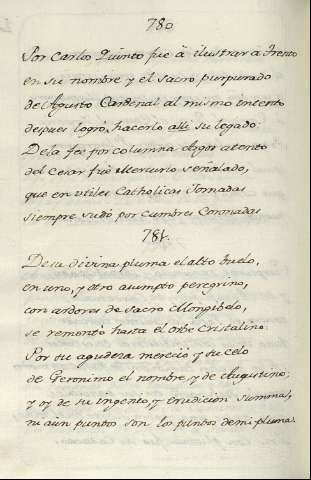 780
Por Carlos Quinto fue à ilustrar a Trento
en su nombre y el sacro purpurado
de Agusto Cardenal al mismo intento
despues logrò, hacerlo alli su legado:
De la fee por columna Argos atento
del Cesar fuè Mercurio señalado,
que en utiles Catholicas Jornadas
siempre sudò por cumbres Coronadas
781.
De su divina pluma el alto buelo,
en uno, y otro asumpto peregrino,
con ardores de sacro Mongibelo,
se remontò hasta el orbe Cristalino:
Por su agudeza mereciò y su celo
de Geronimo el nombre, y de Augustino;
y oy de su ingenio, y erudicion summa,
ni aun puntos son los puntos de mi pluma.